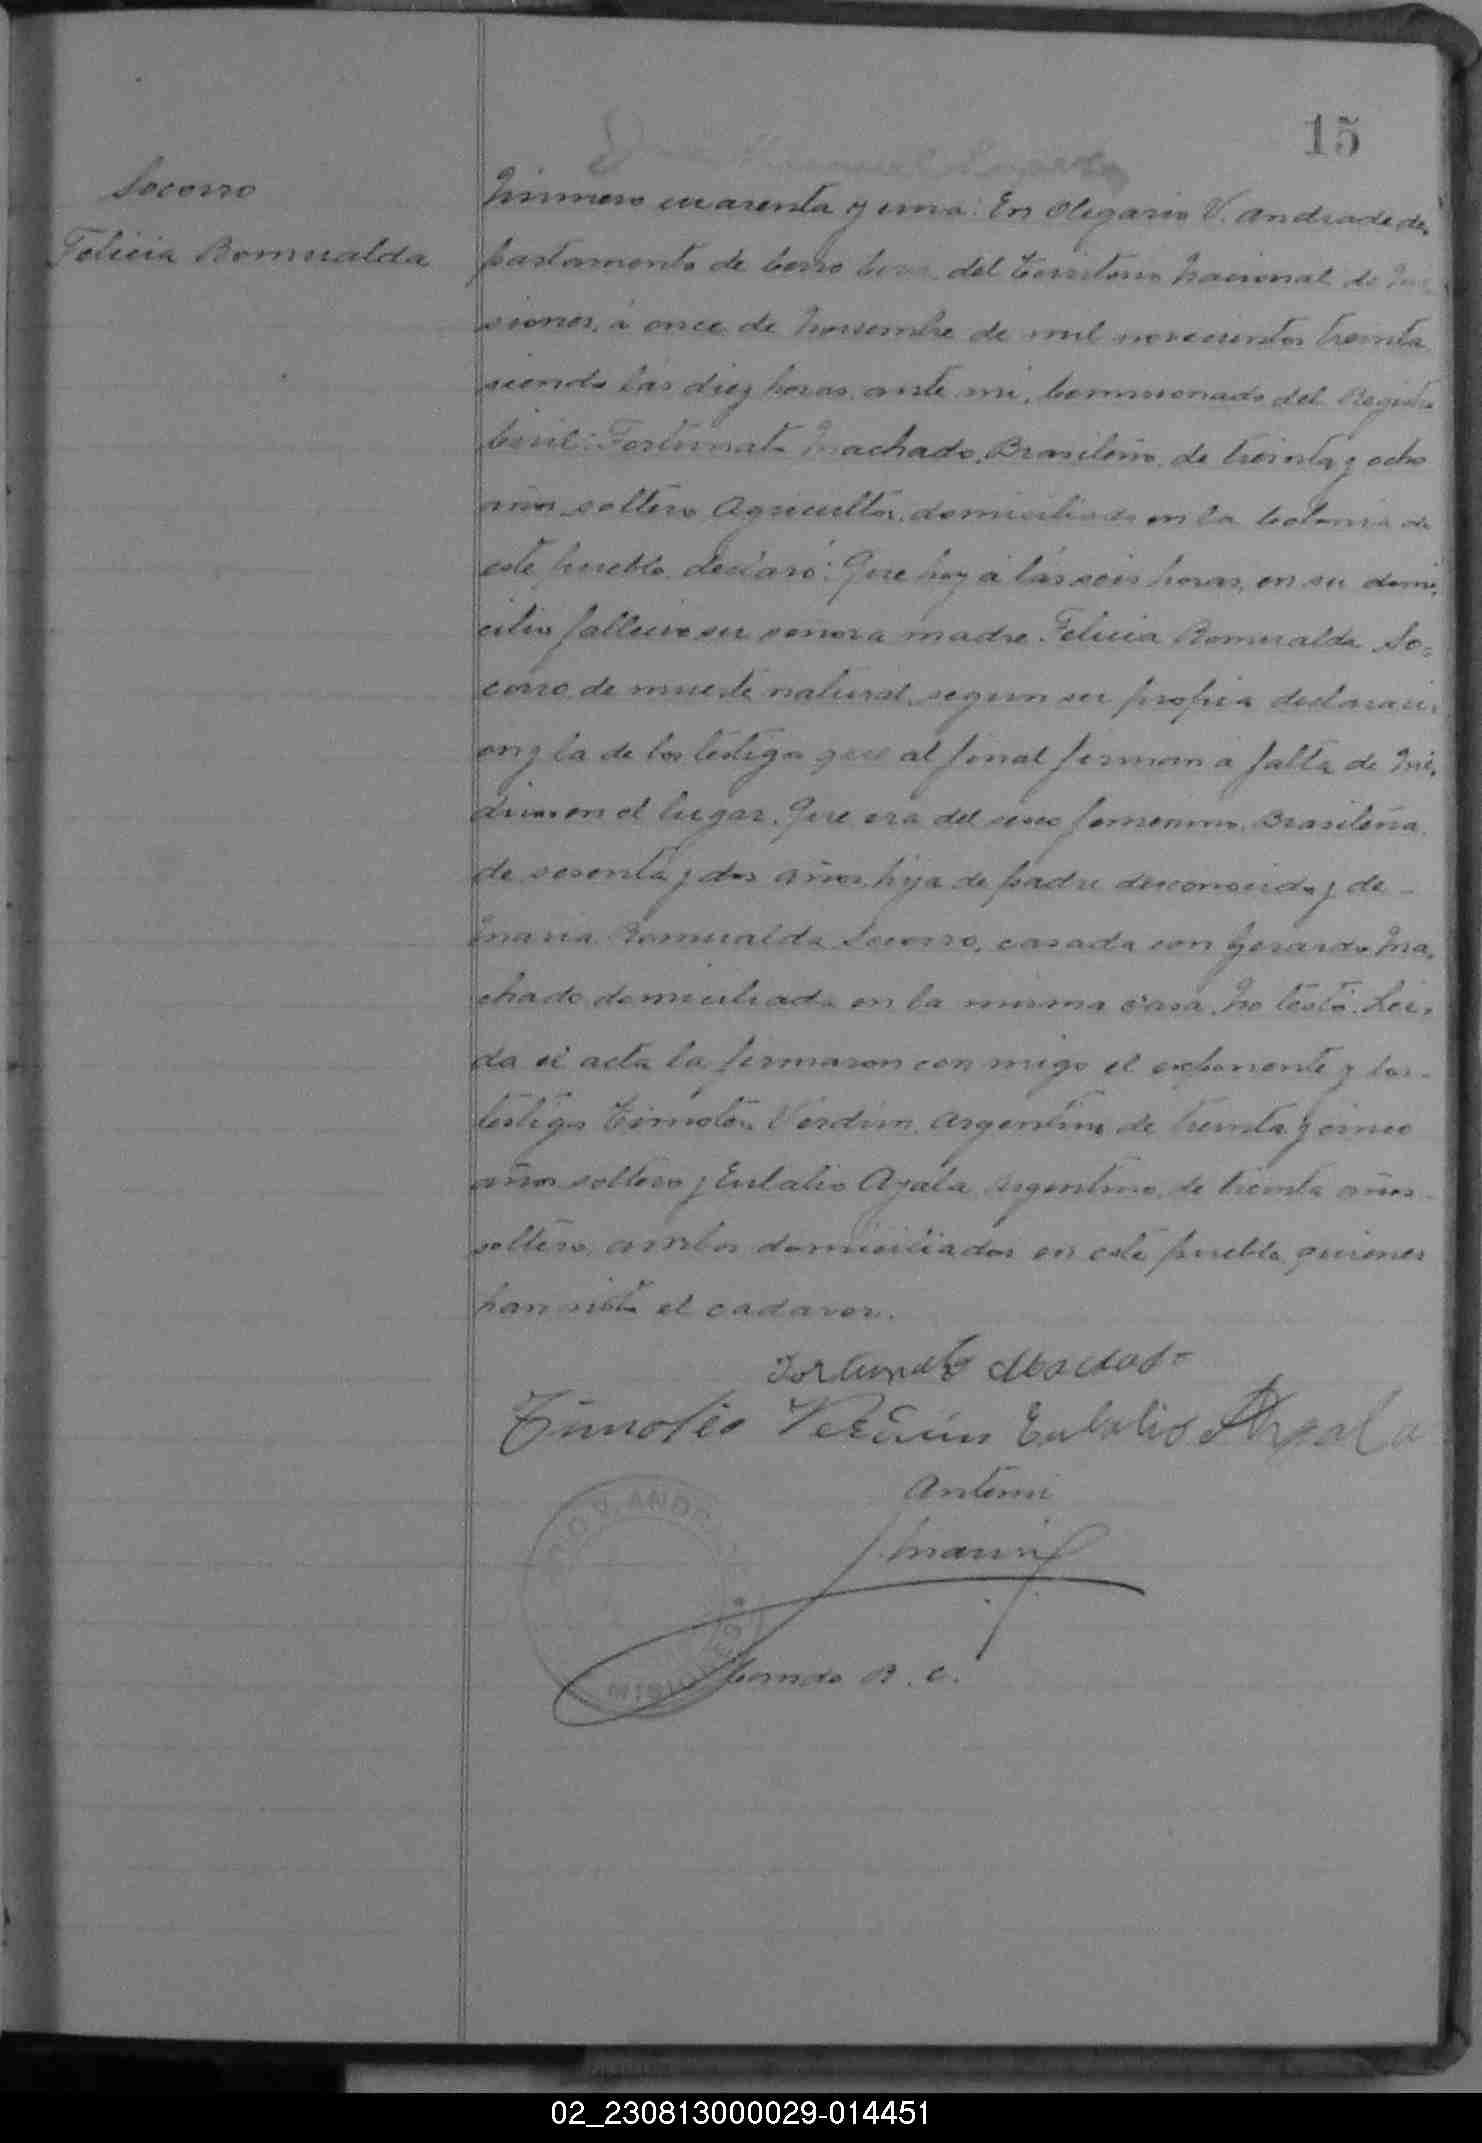 15
Socorro
Felicia Romualda
Número cuarenta y uno: En Olegario V. Andrade de,
partamento de Cerro Corá del Territorio Nacional de Mi,
siones, á once de Noviembre de mil novecientos treinta
siendo las diez horas, ante mi, Comisionado del Registro
Civil: Fortunato Machado, Brasileño, de treinta y ocho
años, soltero Agricultor, domiciliado en la Colonia de
este pueblo declaró: Que hoy á las seis horas, en su domi,
cilio fallecio su señora madre Felicia Romualda So=
corro, de muerte natural, segun su propia declaraci,
on y la de los testigos que al final firman a falta de Mé,
dico en el lugar. Que era del sexo femenino, Brasileña,
de sesenta y dos años, hija de padre desconocido y de -
Maria Romualda Socorro, casada con Gerardo Ma,
chado domiciliada en la misma casa. No testó. Lei,
da el acta la firmaron con migo el exponente y los -
testigos Timoteo Verdún, Argentino de treinta y cinco
años soltero y Eulalio Ayala, Argentino, de treinta años -
soltero, ambos domiciliados en este pueblo, quienes
han visto el cadaver.
Fortunato Machado
Timoteo Verdún Eulalio Ayala
Antemi
J. Marin
Comdo R. C.
V. ANDR
MISIONES
02_230813000029-014451